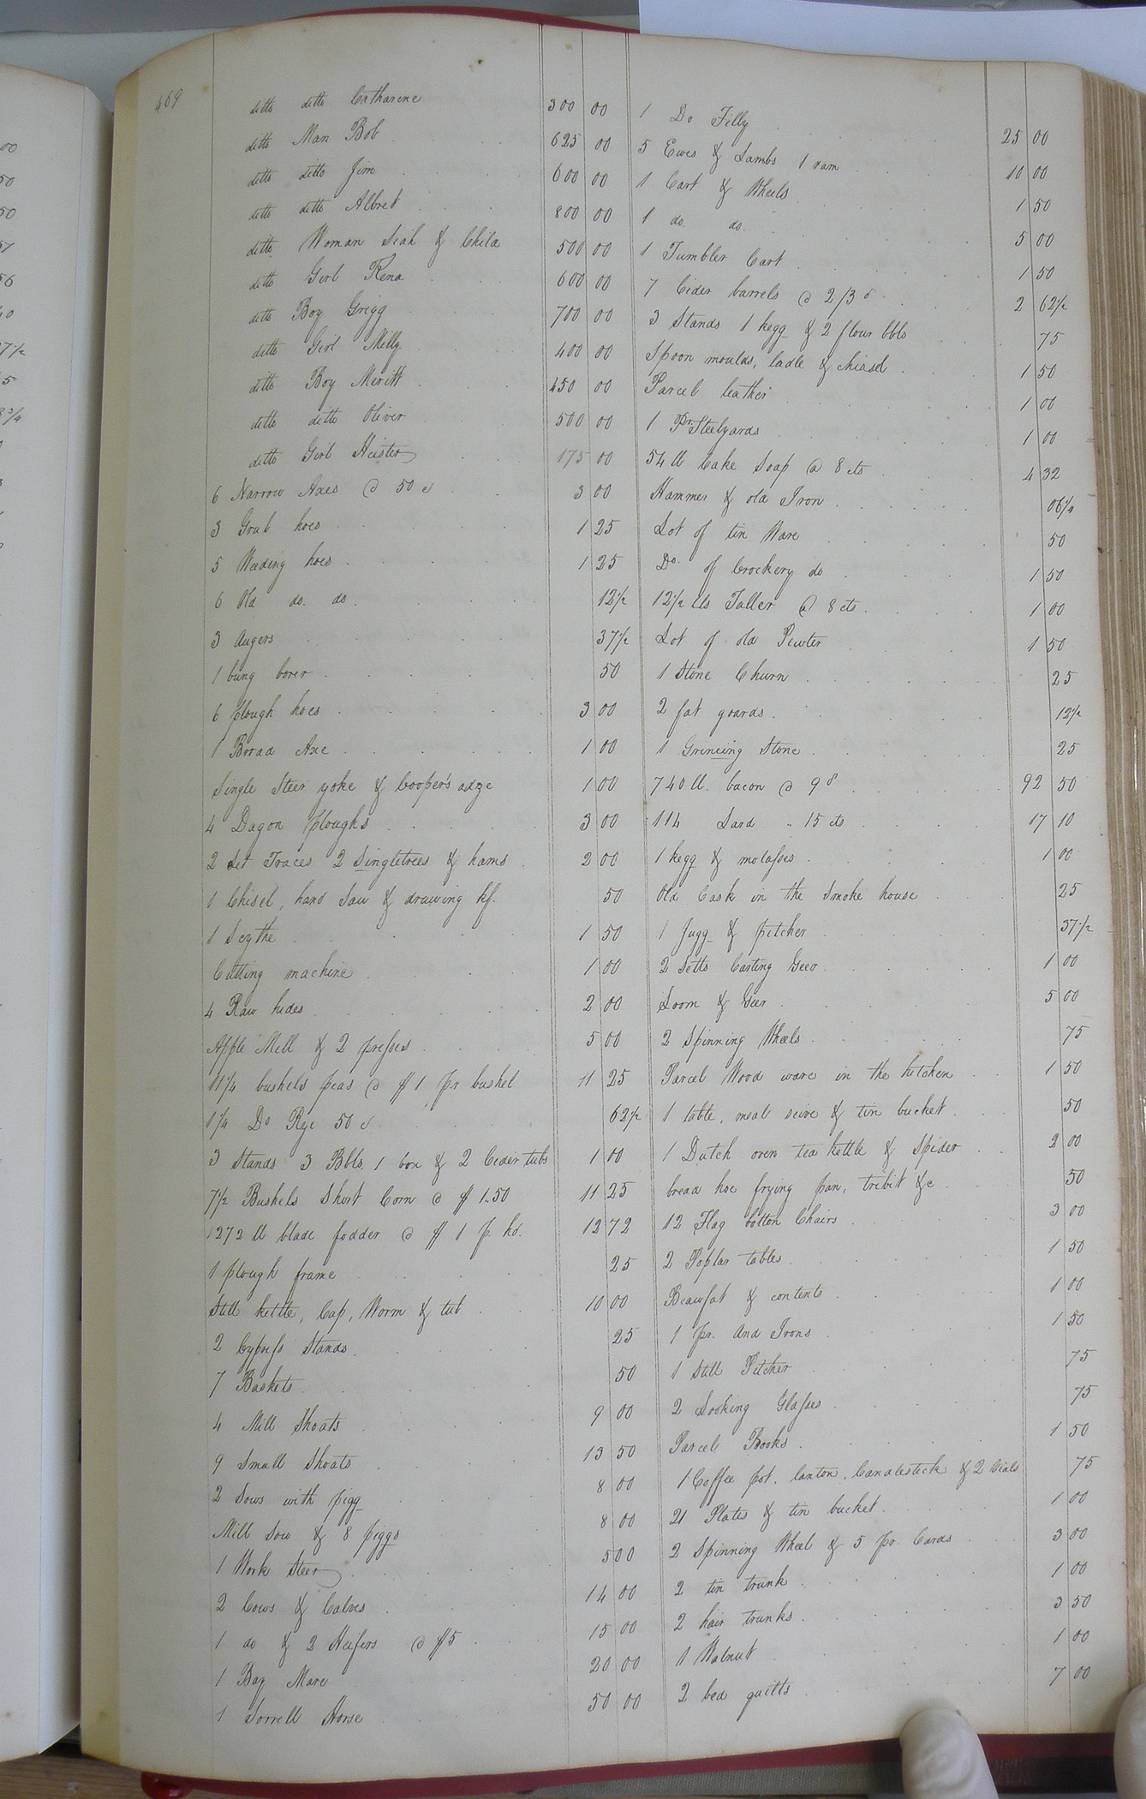 469
ditto ditto Catharine 300 00
ditto Man Bob 625 00
ditto ditto Jim 600 00
ditto ditto Albret 800 00
ditto Woman Leah & Child 500 00
ditto Girl Rena 600 00
ditto Boy Grigg 700 00
ditto Girl Milly 400 00
ditto Boy Meritt 450 00
ditto ditto Oliver 500 00
ditto Girl Heister 175 00
6 Narrow Axes @ 50 c 3 00
3 Grub hoes 1 25
5 Weeding hoes 1 25
6 Old do. do. 12 1/2
3 Augers 37 1/2
1 bung borer 50
6 plough hoes 3 00
1 Borad Axe 1 00
Single Steer yoke & Cooper's adze 1 00
4 Dagon ploughs 3 00
2 Set Traces 2 Singletrees & hams 2 00
1 Chisel, hand Saw & drawing kf. 50
1 Scythe 1 50
Cutting machine 1 00
4 Raw hides 2 00
Apple Mill & 2 presses 5 00
11 1/4 bushels peas @ $1 pr bushel 11 25
1 1/4 Do Rye 50 c 62 1/2
3 Stands 3 Bbls 1 box & 2 Ceder tubs 1 00
7 1/2 Bushels Short Corn @ $1.50 11 25
1272 lb blade fodder @ $1 p. hd. 12 72
1 plough frame 25
Still kettle, Cap, Worm & tub 10 00
2 Cypress Stands 25
7 Baskets 50
4 Mill Shoats 9 00
9 Small Shoats 13 50
2 Sows with pigg 8 00
Mill Sow & 8 piggs 8 00
1 Work Steer 5 00
2 Cows & Calves 14 00
1 do & 2 Heifers @ $5 15 00
1 Bay Mare 20 00
1 Sorrell Horse 50 00
1 Do Filly 25 00
5 Ewes & Lambs 1 ram 10 00
1 Cart & Wheels 1 50
1 do. do. 5 00
1 Tumbler Cart 1 50
7 Cider barrels @ 2/3 d 2 62 1/2
3 Stands 1 kegg & 2 flour bbls 75
Spoon moulds, ladle & chissel 1 50
Parcel leather 1 00
1 Pr Steelyards 1 00
54 lb Cake Soap @ 8 cts 4 32
Hammer & old Iron 06 1/4
Lot of tin Ware 50
Do. of Crockery do 1 50
12 1/2 lbs Taller @ 8 cts 1 00
Lot of old Pewter 1 50
1 Stone Churn 25
2 fat goards 12 1/2
1 Grinding Stone 25
740 lb. bacon @ 9 d 92 50
114 Lard " 15 cts 17 10
1 kegg & molasses 1 00
Old Cask in the Smoke house 25
1 Jugg & pitcher 37 1/2
2 Setts Casting Geer 1 00
Loom & Geer 5 00
2 Spinning Wheels 75
Parcel Wood ware in the kitchen 1 50
1 table, meal seive & tin bucket 50
1 Dutch oven tea kettle & Spider 2 00
bread hoe frying pan, tribit &c 50
12 Flag bottom Chairs 3 00
2 Poplar tables 1 50
Beaufat & contents 1 00
1 pr. And Irons 1 50
1 Still Pitcher 75
2 Looking Glasses 75
Parcel Books 1 50
1 Coffee pot, lanton, Candlestick & 2 Vials 75
21 Plates & tin bucket 1 00
2 Spinning Wheel & 5 pr. Cards 3 00
2 tin trunk 1 00
2 hair trunks 3 50
1 Walnut 1 00
2 bed quilts 7 00